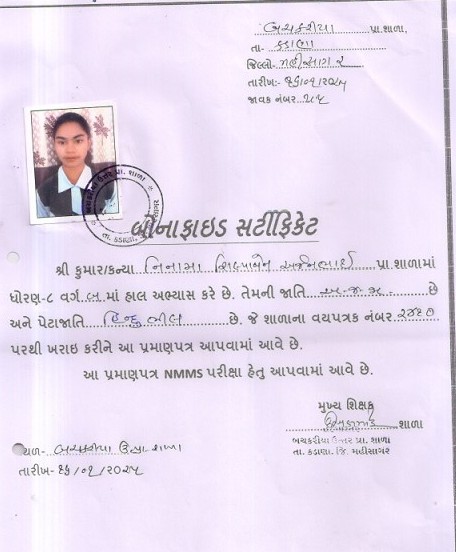 બચકરીયા પ્રા.શાળા,
તા- કડાણા
જિલ્લો- મહીસાગર
તારીખ:- ૧૬/૦૧/૨૦૨૫
જાવક નંબર
બચકરીયા ઉત્તર પ્રા. શાળા
તા. કડાણા,
બોનાફાઇડ સર્ટીફિકેટ
શ્રી કુમાર/કન્યા નિનામા શિલ્પાબેન અર્જનભાઈ પ્રા.શાળામાં
ધોરણ-૮ વર્ગ બ માં હાલ અભ્યાસ કરે છે. તેમની જાતિ અ.જ.જ છે
અને પેટાજાતિ હિન્દુ ભીલ છે. જે શાળાના વયપત્રક નંબર
પરથી ખરાઇ કરીને આ પ્રમાણપત્ર આપવામાં આવે છે.
આ પ્રમાણપત્ર NMMS પરીક્ષા હેતુ આપવામાં આવે છે.
મુખ્ય શિક્ષક
શાળા
બચકરીયા ઉત્તર પ્રા. શાળા
તા. કડાણા, જિ. મહીસાગર
સ્થળ- બચકરીયા ઉ પ્રા શાળા
તારીખ- ૧૬/૦૧/૨૦૨૫